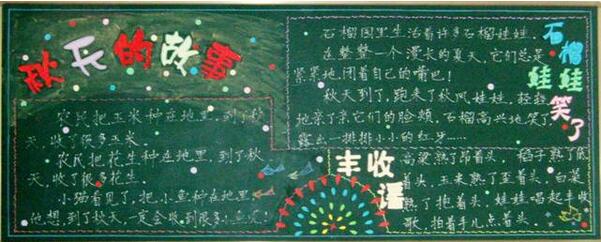 秋天的故事
农民把玉米种在地里,到了秋
天,收了很多玉米。
农民把花生种在地里,到了秋
天,收了很多花生。
小猫看见了,把小鱼种在地里。
他想,到了秋天,一定会收到很多小鱼吧!
石榴娃娃笑了
石榴园里生活着许多石榴娃娃。
在整整一个漫长的夏天,它们总是
紧紧地闭着自己的嘴巴!
秋天到了,跑来了秋风娃娃,轻轻
地亲了亲它们的脸颊,石榴高兴地笑了
露出一排排小小的红牙……
丰收谣
高粱熟了昂着头,稻子熟了低
着头,玉米熟了歪着头,白菜
熟了抱着头,娃娃唱起丰收
歌,拍着手儿点着头。